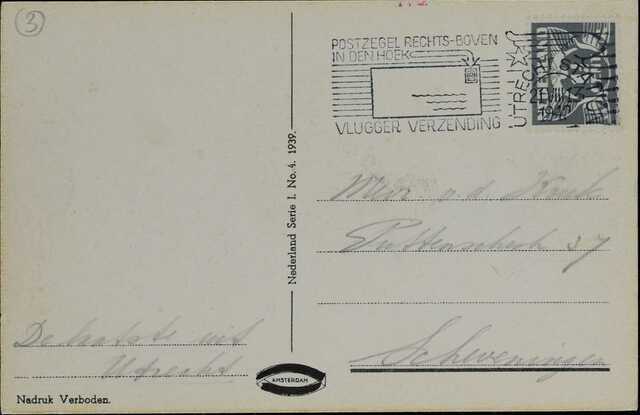 3
POSTZEGEL RECHTS-BOVEN
IN DEN HOEK
VLUGGER VERZENDING
UTRECHT
Nederland Serie I. No. 4. 1939.
Mevr v. d.
37
Scheveningen
De laatste uit
Utrecht
AMSTERDAM
Nadruk Verboden.